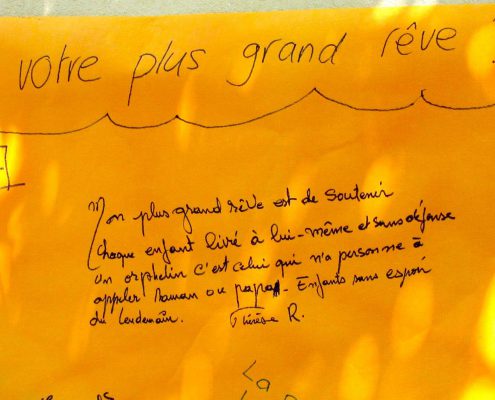 votre plus grand rêve
Mon plus grand rêve est de soutenir
chaque enfant livré à lui-même et sans défense
un orphelin c'est celui qui n'a personne à
appeler Maman ou papa. Enfants sans espoir
du lendemain. Thérèse R.
La